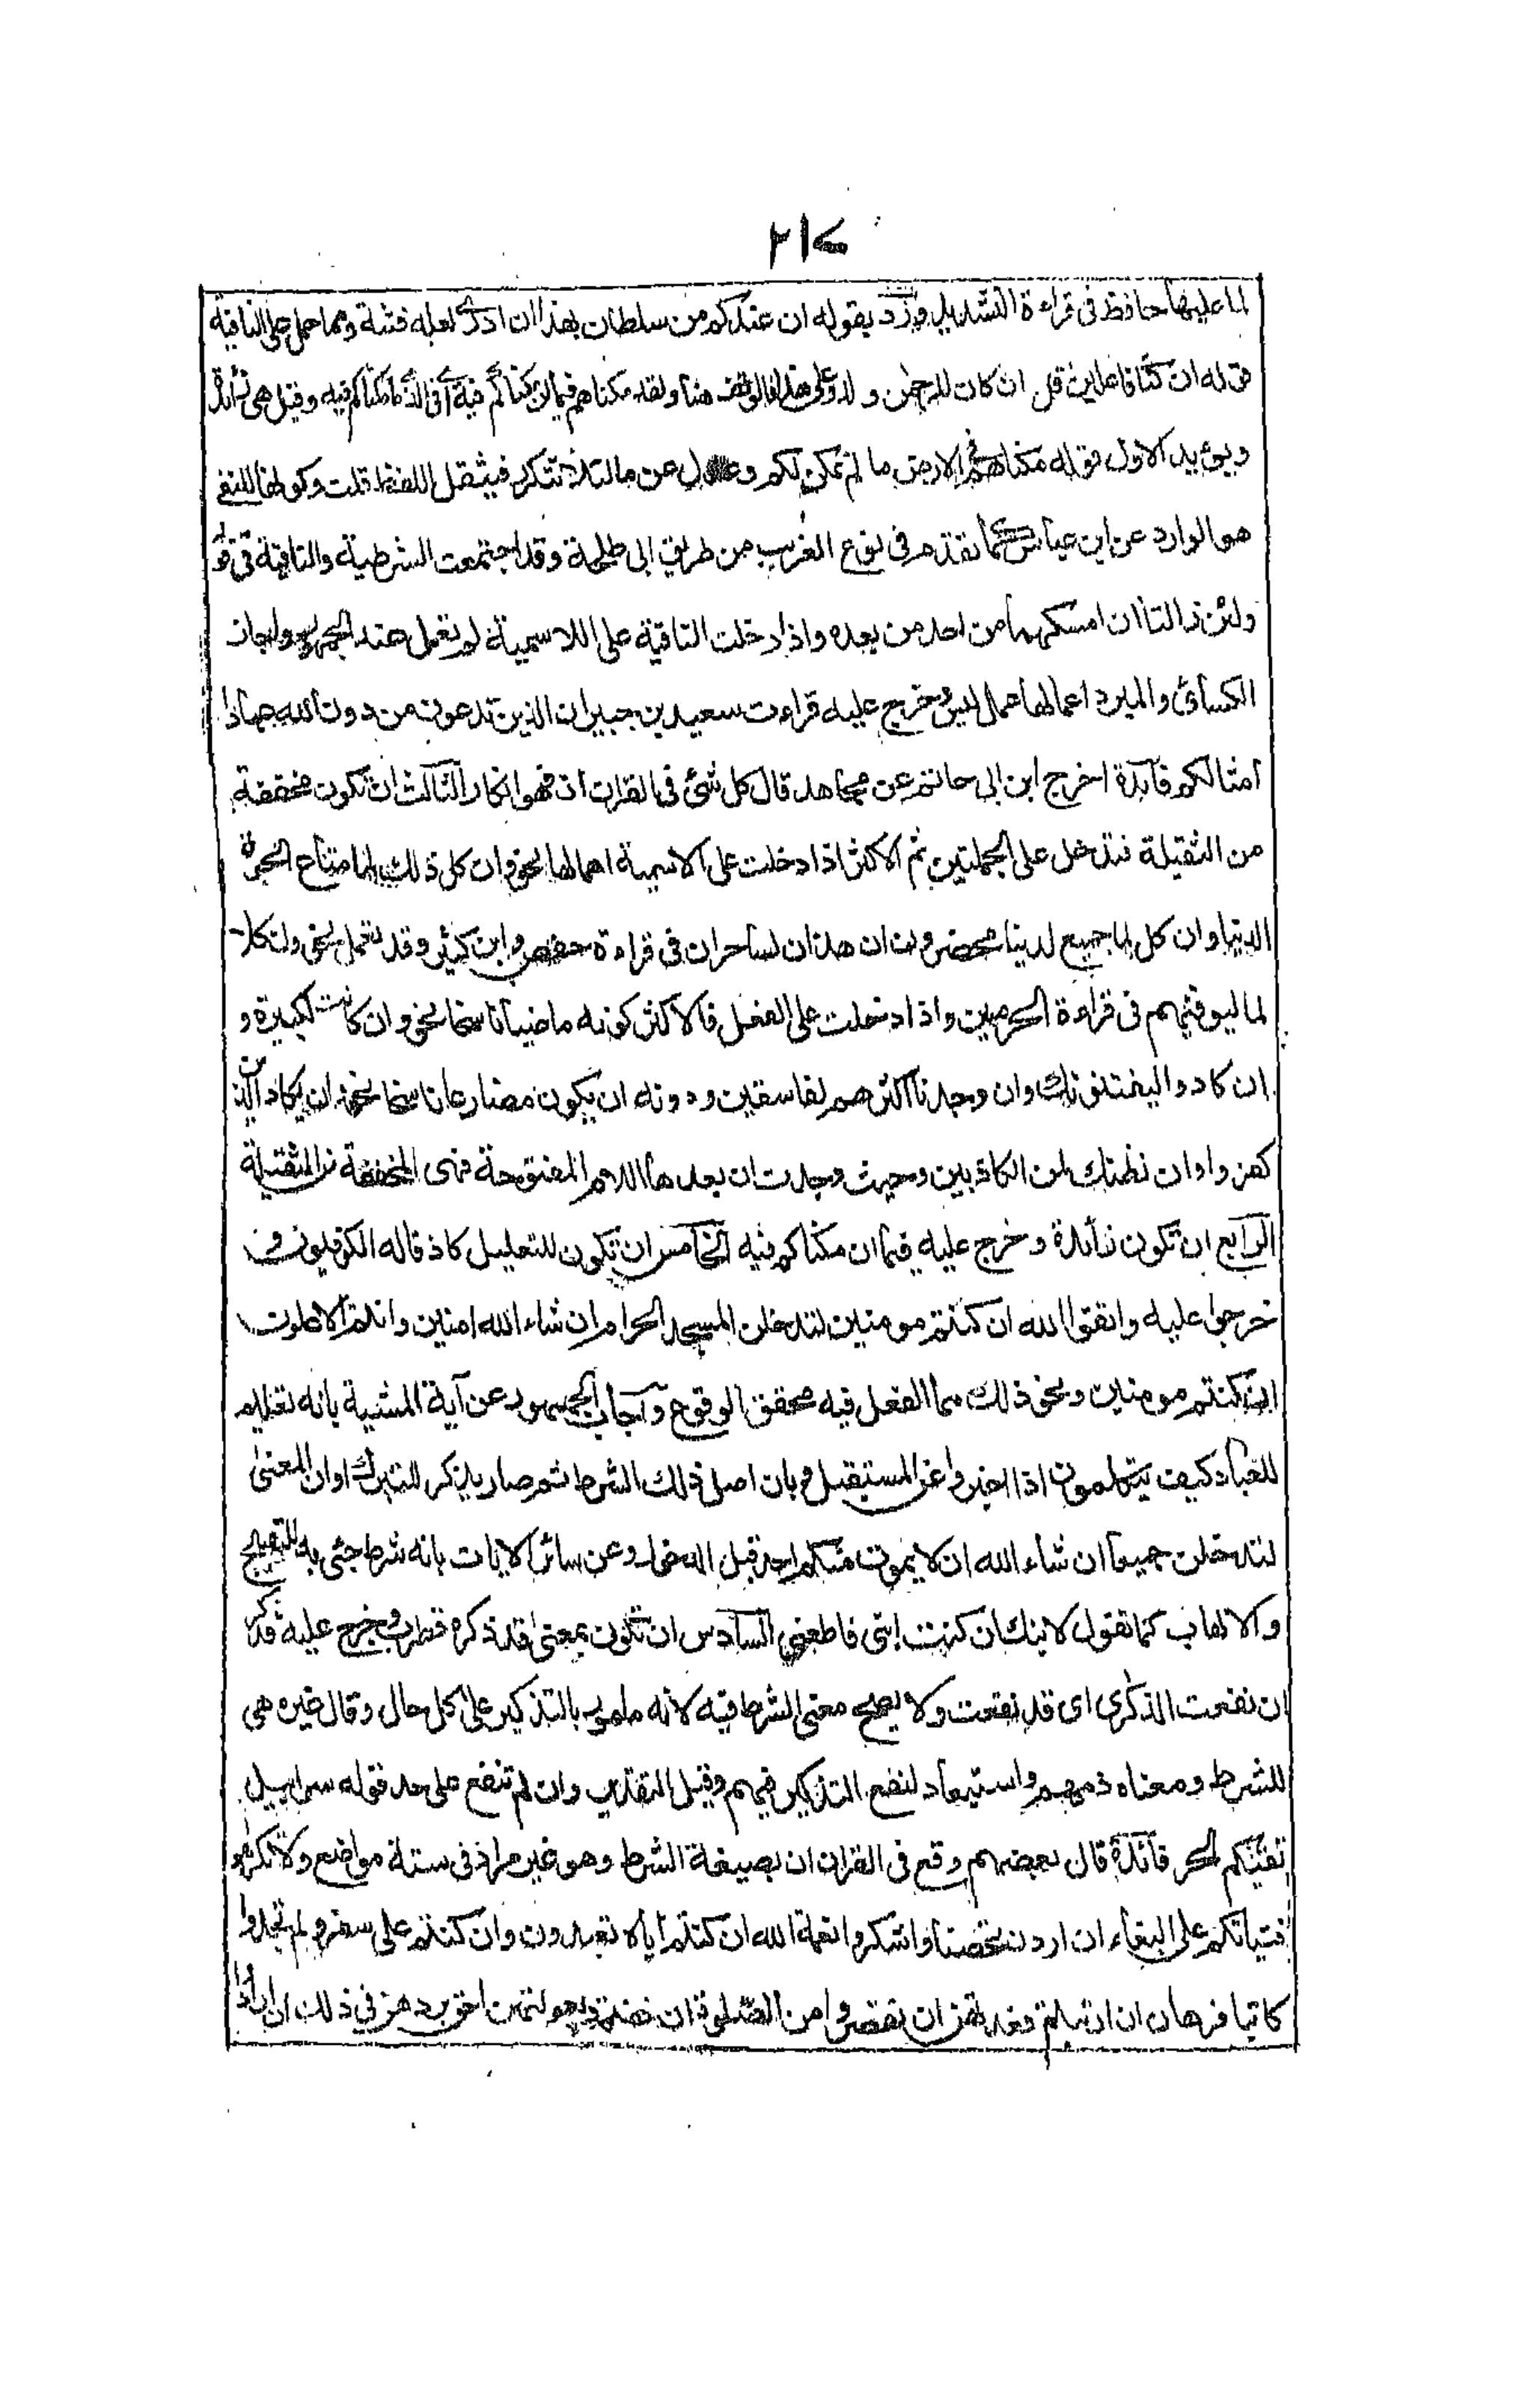 ٢١٧
لما عليها حافظ فى قراءة التشديد ورد بقوله ان عندكم من سلطان بهذا ان ادرى لعله فتنة ومما حمل على النافية
قوله ان كنا فاعلين قل ان كان للرحمن ولد وعلى هذا فالوقف هنا ولقد مكناهم فيما ان مكناكم فيه اى فى الذى ما مكناكم فيه وقيل هى زائدة
ويؤيد الاول قوله مكناهم فى الارض ما لم نمكن لكم وعدل عن ما لئلا تتكرر فيثقل اللفظ قلت وكونها للنفى
هو الوارد عن ابن عباس كما تقدم فى نوع الغريب من طريق ابى طلحة وقد اجتمعت الشرطية والنافية فى قوله
ولئن زالتا ان امسكهما من احد من بعده واذا دخلت النافية على الاسمية لم تعمل عند الجمهور واجاز
الكسائى والمبرد اعمالها عمل ليس وخرج عليه قراءت سعيد بن جبير ان الذين تدعون من دون الله عبادا
امثالكم فآئدة اخرج ابن ابى حاتم عن مجاهد قال كل شئ فى القران ان فهو انكار الثالث ان تكون مخففة
من الثقيلة فتدخل على الجملتين ثم الاكثر اذا دخلت على الاسمية اهمالها نحو وان كل ذلك لما متاع الحيوة
الدنيا وان كل لما جميع لدينا محضرون ان هذان لساحران فى قراءة حفص وابن كثير وقد تعمل نحو وان كلا
لما ليوفينهم فى قراءة الحرميين واذا دخلت على الفعل فالاكثر كونه ماضيا ناسخا نحو وان كانت لكبيرة و
ان كادوا ليفتنونك وان وجدنا اكثرهم لفاسقين ودونه ان يكون مضارعا ناسخا نحو ان يكاد الذين
كفروا وان نظنك لمن الكاذبين وحيث وجدت ان بعدها اللام المفتوحة فهى المخففة من الثقيلة
الرابع ان تكون زائدة وخرج عليه فيما ان مكناكم فيه الخامس ان تكون للتعليل كاذ قاله الكوفيون و
خرجوا عليه واتقوا الله ان كنتم مومنين لتدخلن المسجد الحرام ان شاء الله امنين وانتم الاعلون
ان كنتم مومنين ونحو ذلك مما الفعل فيه محقق الوقوع وآجاب الجمهور عن آية المشية بانه تعليم
للعباد كيف يتكلمون اذا اخبروا عن المستقبل وبان اصل ذلك الشرط ثم صار يذكر للتبرك او ان المعنى
لتدخلن جميعا ان شاء الله ان لا يموت منكم احد قبل الدخول وعن سائر الايات بانه شرط جئ به للتهييج
والالهاب كما تقول لابنك ان كنت ابنى فاطعنى السادس ان تكون بمعنى قد ذكره قطرب وخرج عليه فذكر
ان نفعت الذكرى اى قد نفعت ولا يصح معنى الشرط فيه لانه مامور بالتذكير على كل حال وقال غيره هى
للشرط ومعناه ذمهم واستبعاد لنفع التذكير فيهم وقيل التقدير وان لم تنفع على حد قوله سرابيل
تقيكم الحر فآئدة قال بعضهم وقع فى القران ان بصيغة الشرط وهو غير مراد فى ستة مواضع ولا تكرهوا
فتياتكم على البغاء ان اردن تحصنا واشكروا نعمة الله ان كنتم اياه تعبدون وان كنتم على سفر ولم تجدوا
كاتبا فرهان ان ارتبتم فعدتهن ان تقصروا من الصلوة ان خفتم وبعولتهن احق بردهن فى ذلك ان ارادوا